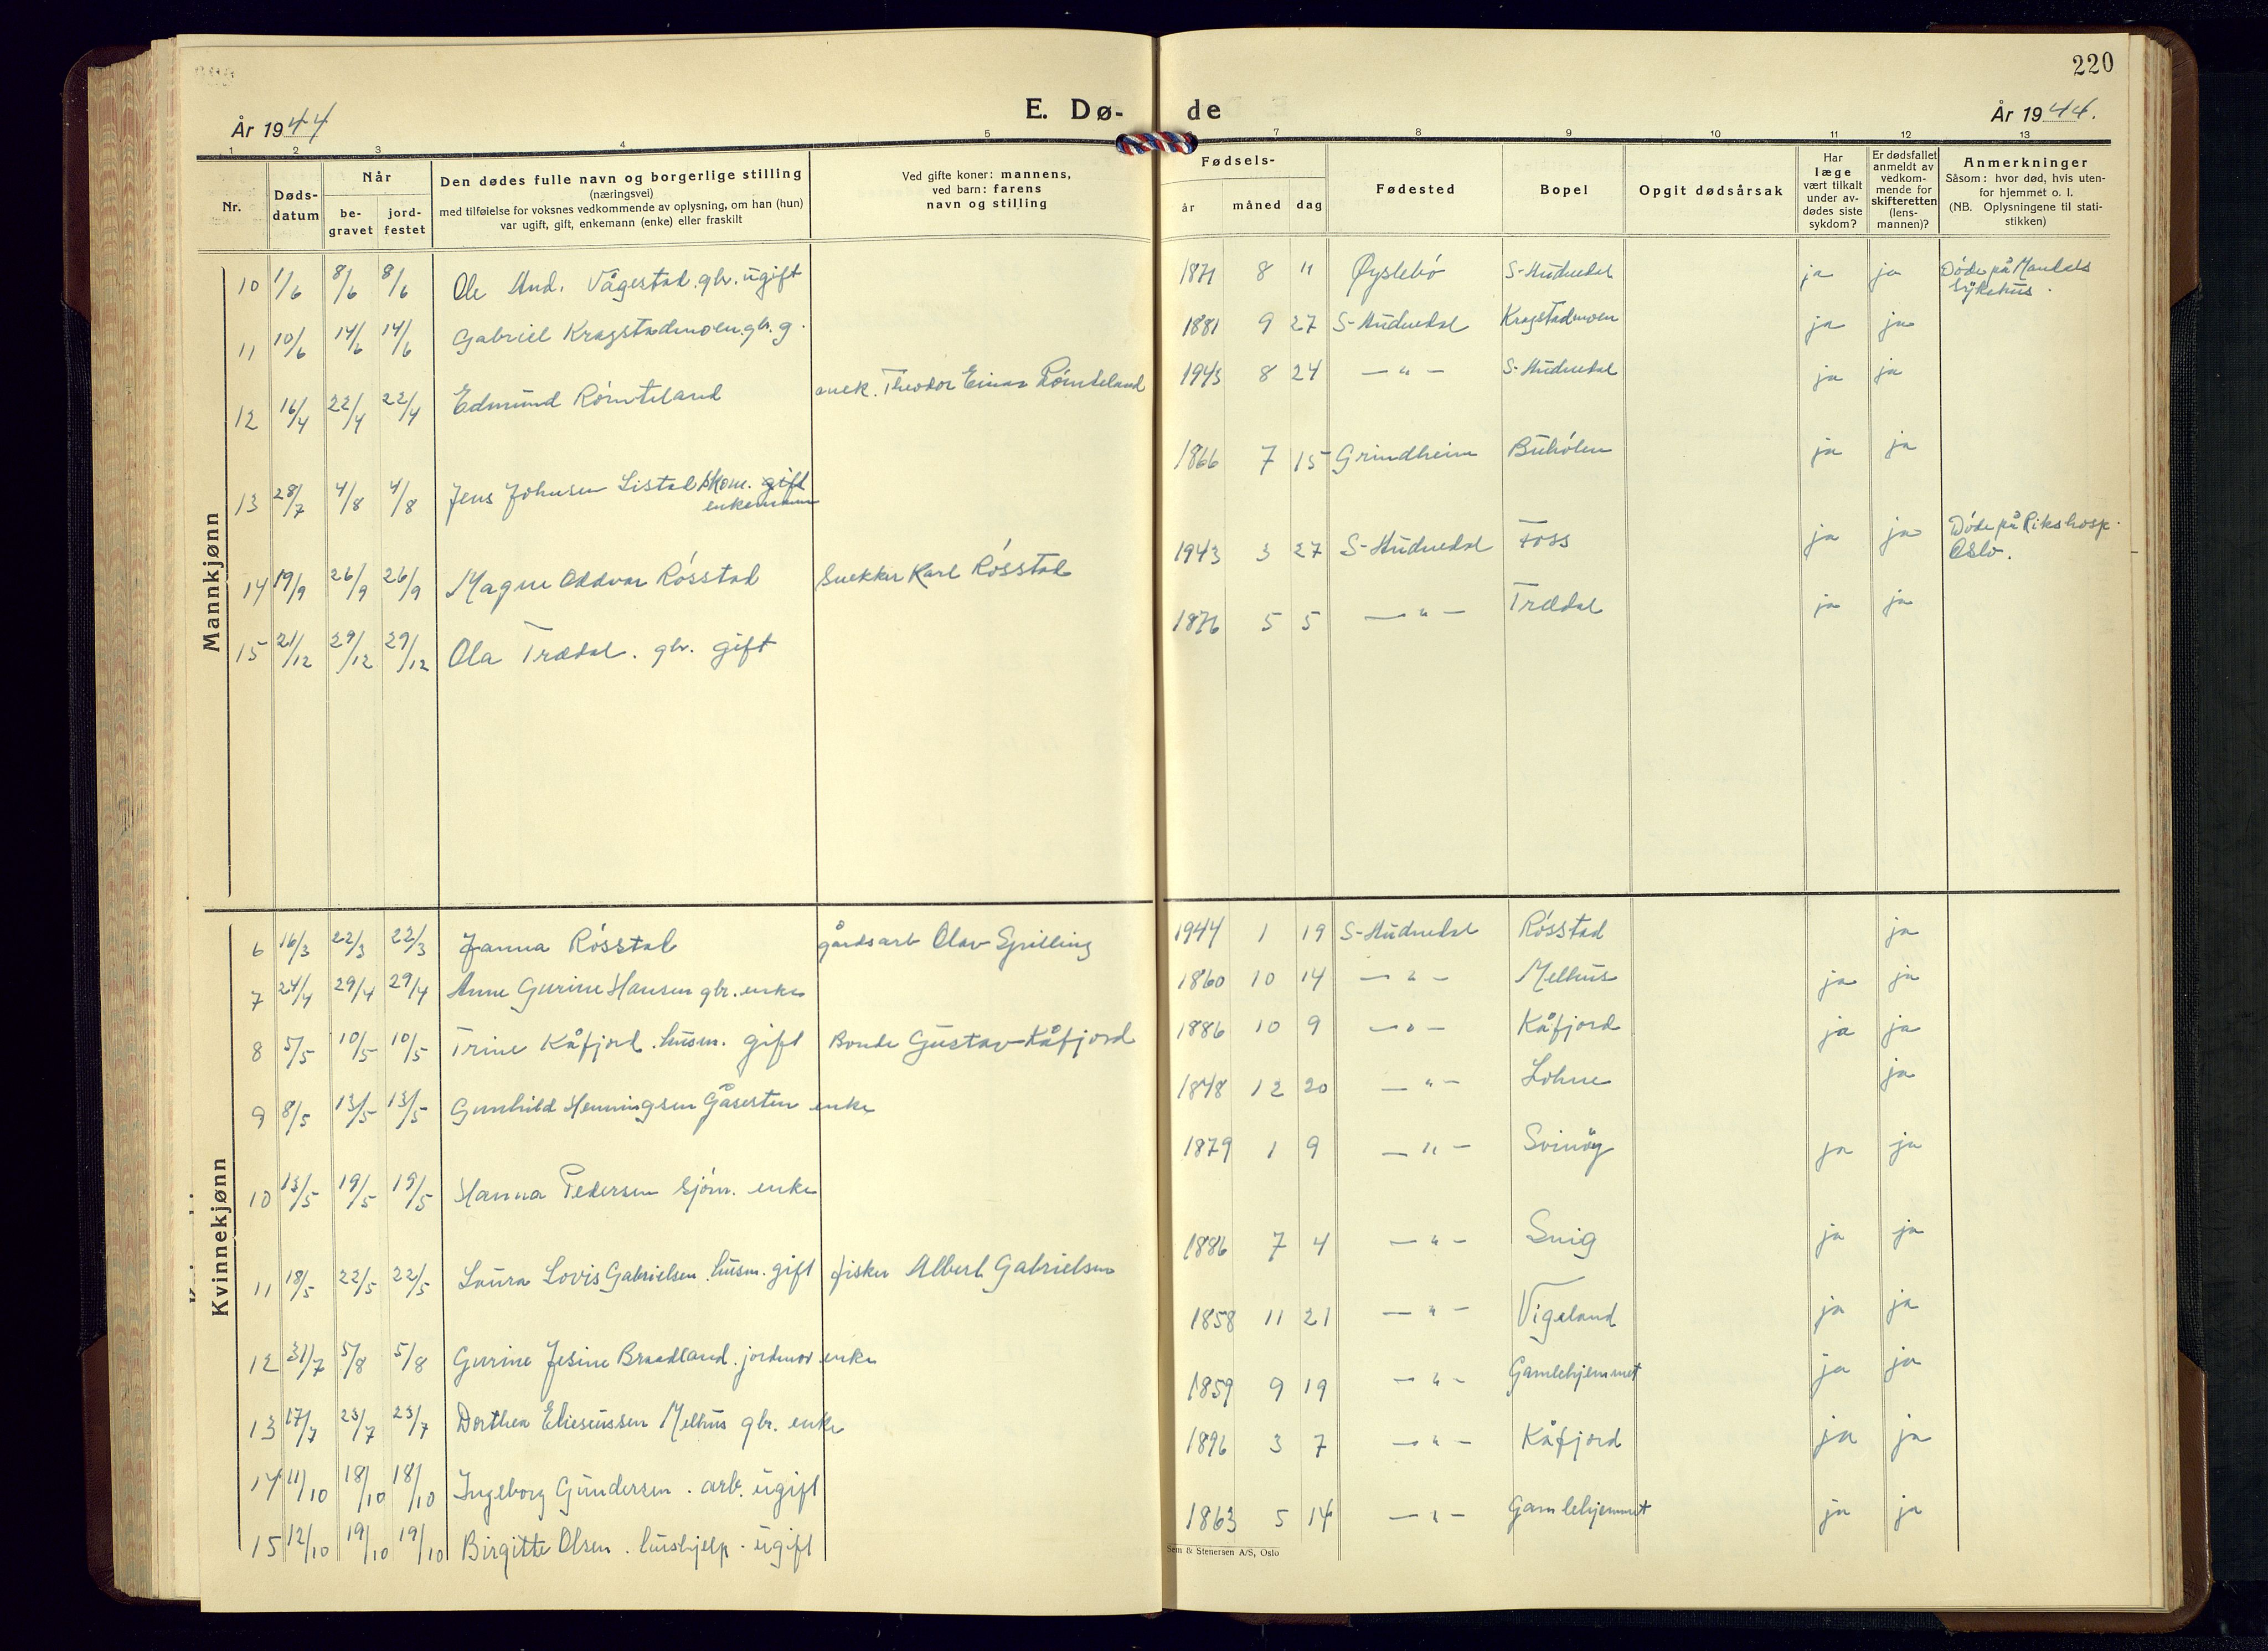 220
År 1944
E. Dø-
de
År 1944.
1 2 3 4 5
7 8 9 10 11 12 13
Nr.
Døds-
datum
Når
be-
gravet
jord-
festet
Den dødes fulle navn og borgerlige stilling
(næringsvei)
med tilføielse for voksnes vedkommende av oplysning, om han (hun)
var ugift, gift, enkemann (enke) eller fraskilt
Ved gifte koner: mannens,
ved barn: farens
navn og stilling
Fødsels-
år måned dag
Fødested
Bopel
Opgit dødsårsak
Har
læge
vært tilkalt
under av-
dødes siste
sykdom?
Er dødsfallet
anmeldt av
vedkom-
mende for
skifteretten
(lens-
mannen)?
Anmerkninger
Såsom: hvor død, hvis uten-
for hjemmet o. l.
(NB. Oplysningene til stati-
stikken)
Mannkjønn
10 1/6 8/6 8/6 Ole And. Vågestad. gbr. ugift 1871 8 11 Øyslebø S-Audnedal ja ja Døde på Mandals
Sykehus.
11 10/6 14/6 14/6 Gabriel Kragstadmoen. gbr. g. 1881 9 27 S-Audnedal Kragstadmoen ja ja
12 16/4 22/4 22/4 Edmund Rømteland snek. Theodor Einar Rømteland 1943 8 24 — " — S-Audnedal ja ja
13 28/7 4/8 4/8 Jens Johnsen Listal skom. gift
enkemann 1866 7 15 Grindheim Buhølen ja ja
14 19/9 26/9 26/9 Magne Oddvar Røsstad Snekker Karl Røsstad 1943 3 27 S-Audnedal Foss ja ja Døde på Rikshosp.
Oslo.
15 21/12 29/12 29/12 Ola Trædal. gbr. gift 1876 5 5 — " — Trædal ja ja
Kvinnekjønn
6 16/3 22/3 22/3 Janna Røsstad gårdsarb Olav Spilling 1944 1 19 S-Audnedal Røsstad ja
7 24/4 29/4 29/4 Anne Gurine Hansen gbr. enke 1860 10 14 — " — Melhus ja ja
8 5/5 10/5 10/5 Trine Kåfjord. husm. gift Bonde Gustav Kåfjord 1886 10 9 — " — Kåfjord ja ja
9 8/5 13/5 13/5 Gunhild Henningsen Gåsesten enke 1848 12 20 — " — Lohne ja
10 13/5 19/5 19/5 Hanna Pedersen sjøm. enke 1879 1 9 — " — Svinøy ja ja
11 18/5 22/5 22/5 Laura Lovis Gabrielsen. husm. gift fisker Albert Gabrielsen 1886 7 4 — " — Snig ja ja
12 31/7 5/8 5/8 Gurine Jesine Braadland. jordmor enke 1858 11 21 — " — Vigeland ja ja
13 17/7 23/7 23/7 Dorthea Elieseussen Melhus gbr. enke 1859 9 19 — " — Gamlehjemmet ja ja
14 11/10 18/10 18/10 Ingeborg Gundersen. arb. ugift 1896 3 7 — " — Kåfjord ja ja
15 12/10 19/10 19/10 Birgitte Olsen. hushjelp. ugift 1863 5 14 — " — Gamlehjemmet ja ja
Sem & Stenersen A/S, Oslo